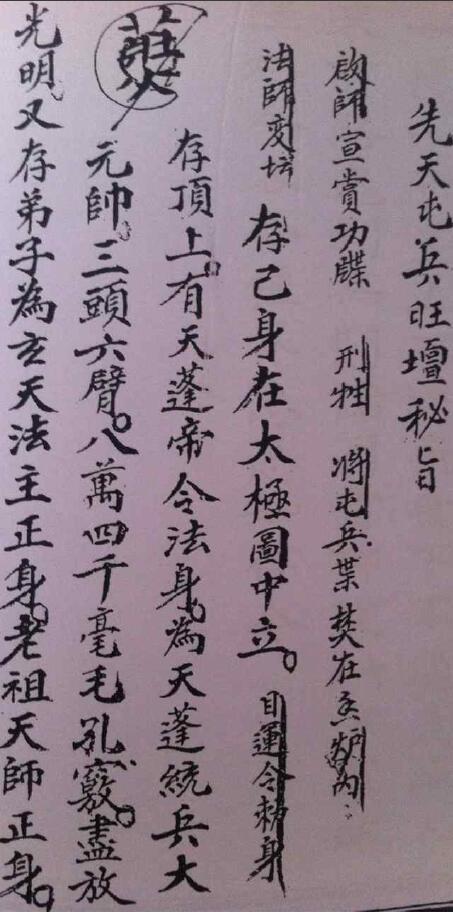 先天屯兵旺壇秘旨
啟師宣賞功牒　刑牲　將屯兵葉焚在炉內
法師变坛　存己身在太極圖中立。目運令勅身
存頂上。有天蓬帝令法身。為天蓬統兵大
元帥。三頭六臂。八萬四千毫毛孔竅。盡放
光明又存弟子為玄天法主正身。老祖天師正身。